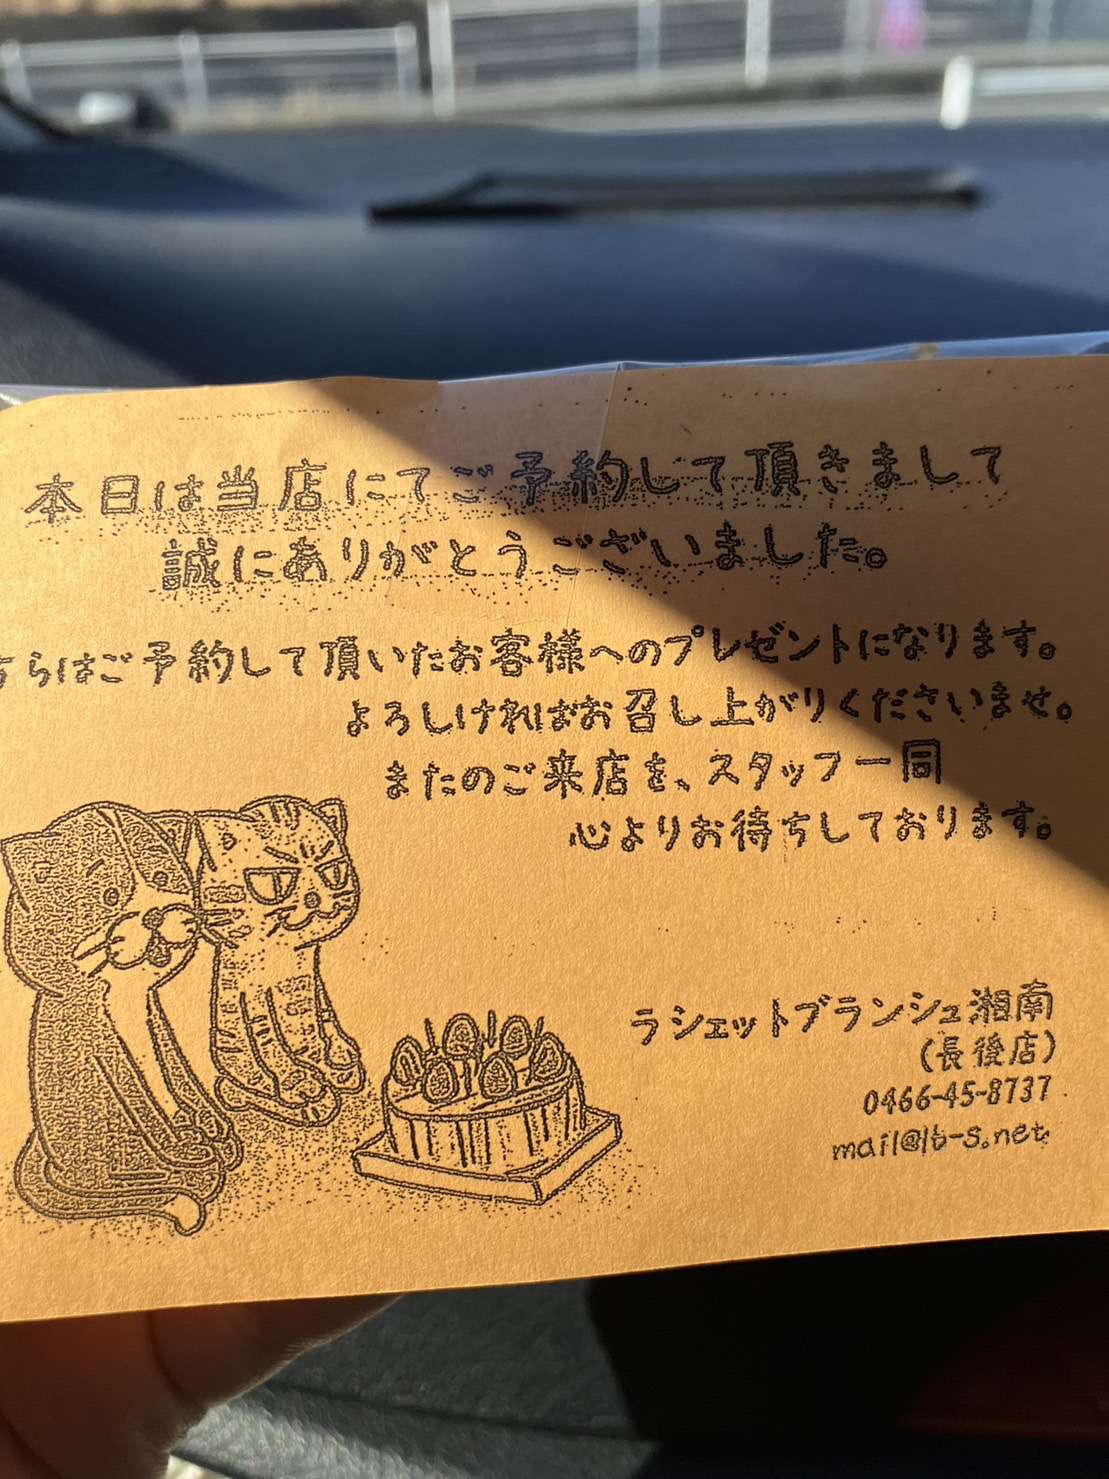 本日は当店にてご予約して頂きまして
誠にありがとうございました。
ちらはご予約して頂いたお客様へのプレゼントになります。
よろしければお召し上がりくださいませ。
またのご来店を、スタッフ一同
心よりお待ちしております。
ラシェットブランシュ湘南
(長後店)
0466-45-8737
mail@lb-s.net